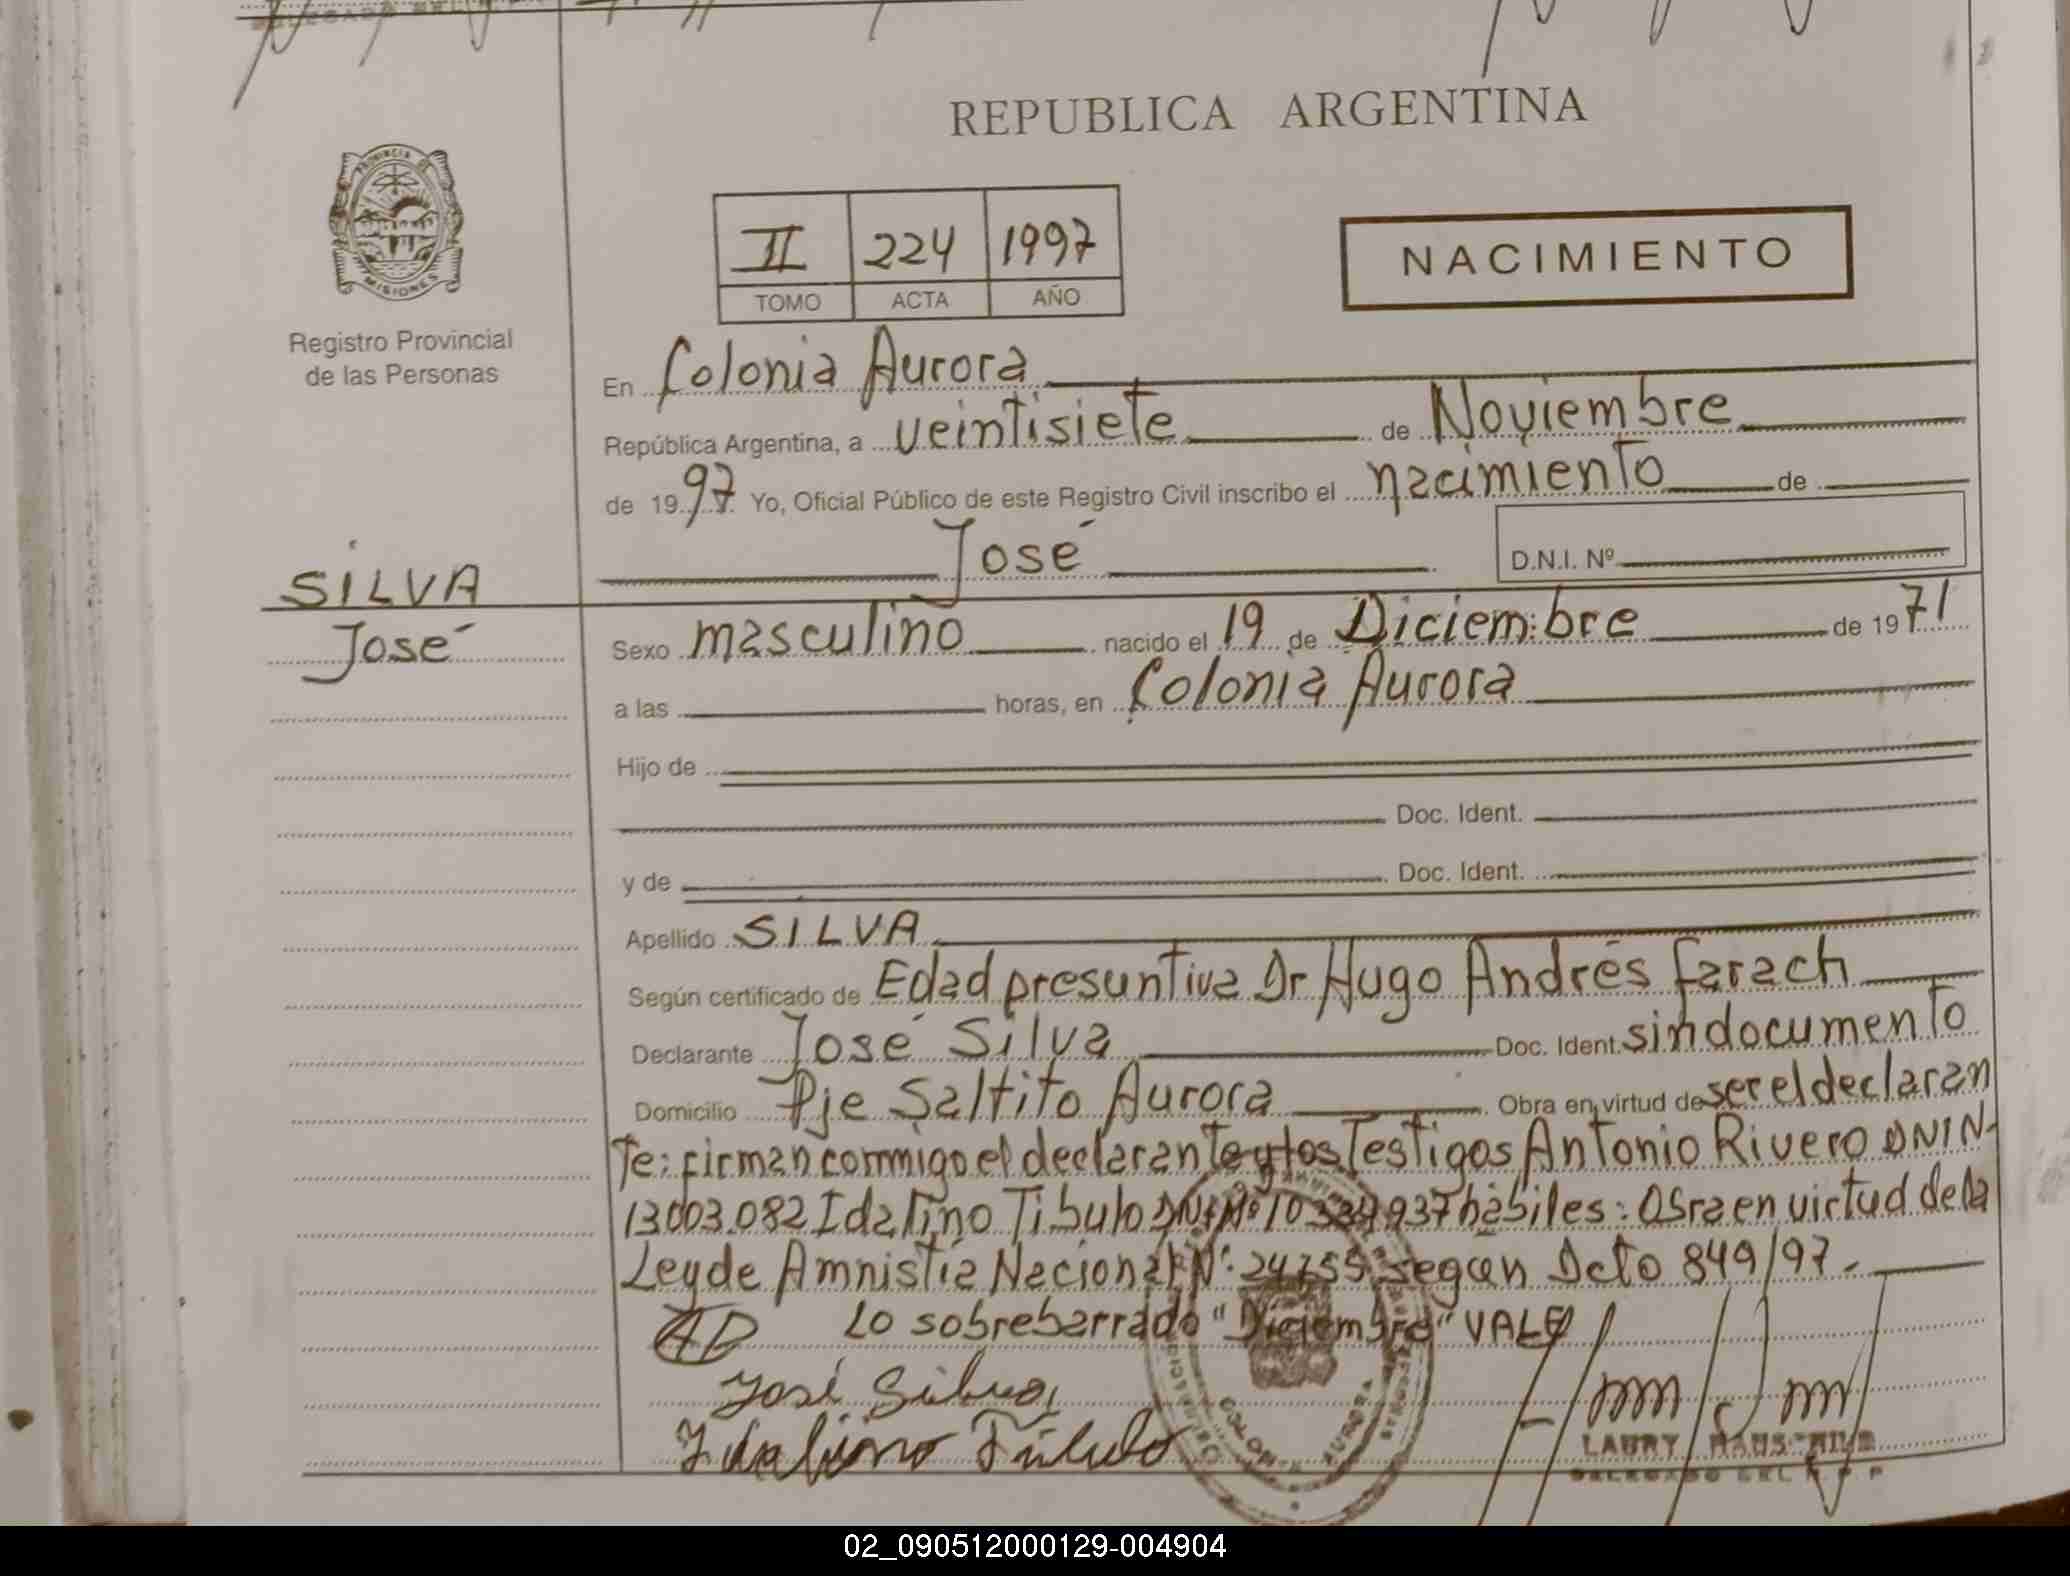 REPUBLICA ARGENTINA
PROVINCIA DE
MISIONES
Registro Provincial
de las Personas
II 224 1997
TOMO ACTA AÑO
NACIMIENTO
En Colonia Aurora
República Argentina, a veintisiete de Noviembre
de 1997 Yo, Oficial Público de este Registro Civil inscribo el nacimiento de
José D.N.I. Nº
SILVA
José
Sexo masculino nacido el 19 de Diciembre de 1971
a las horas, en Colonia Aurora
Hijo de
Doc. Ident.
y de Doc. Ident.
Apellido SILVA
Según certificado de Edad presuntiva Dr Hugo Andrés Farach
Declarante José Silva Doc. Ident. sin documento
Domicilio Pje Saltito Aurora Obra en virtud de ser el declaran
te: firman conmigo el declarante y los Testigos Antonio Rivero DNI N-
13003.082 Idalino Tibulo DNI Nº 10 334937 hábiles: Obra en virtud de la
Ley de Amnistía Nacional Nº 24755 según Dcto 849/97.-
Lo sobrebarrado "Diciembre" VALE
José Silva
Idalino Tibulo
COLONIA AURORA
LAURY
DELEGADO DEL R P P
02_090512000129-004904